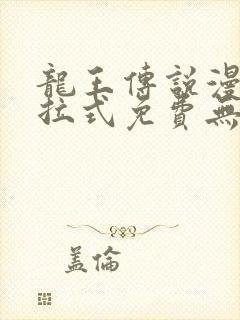 龍王傳說漫
拉式免費無
蓋倫